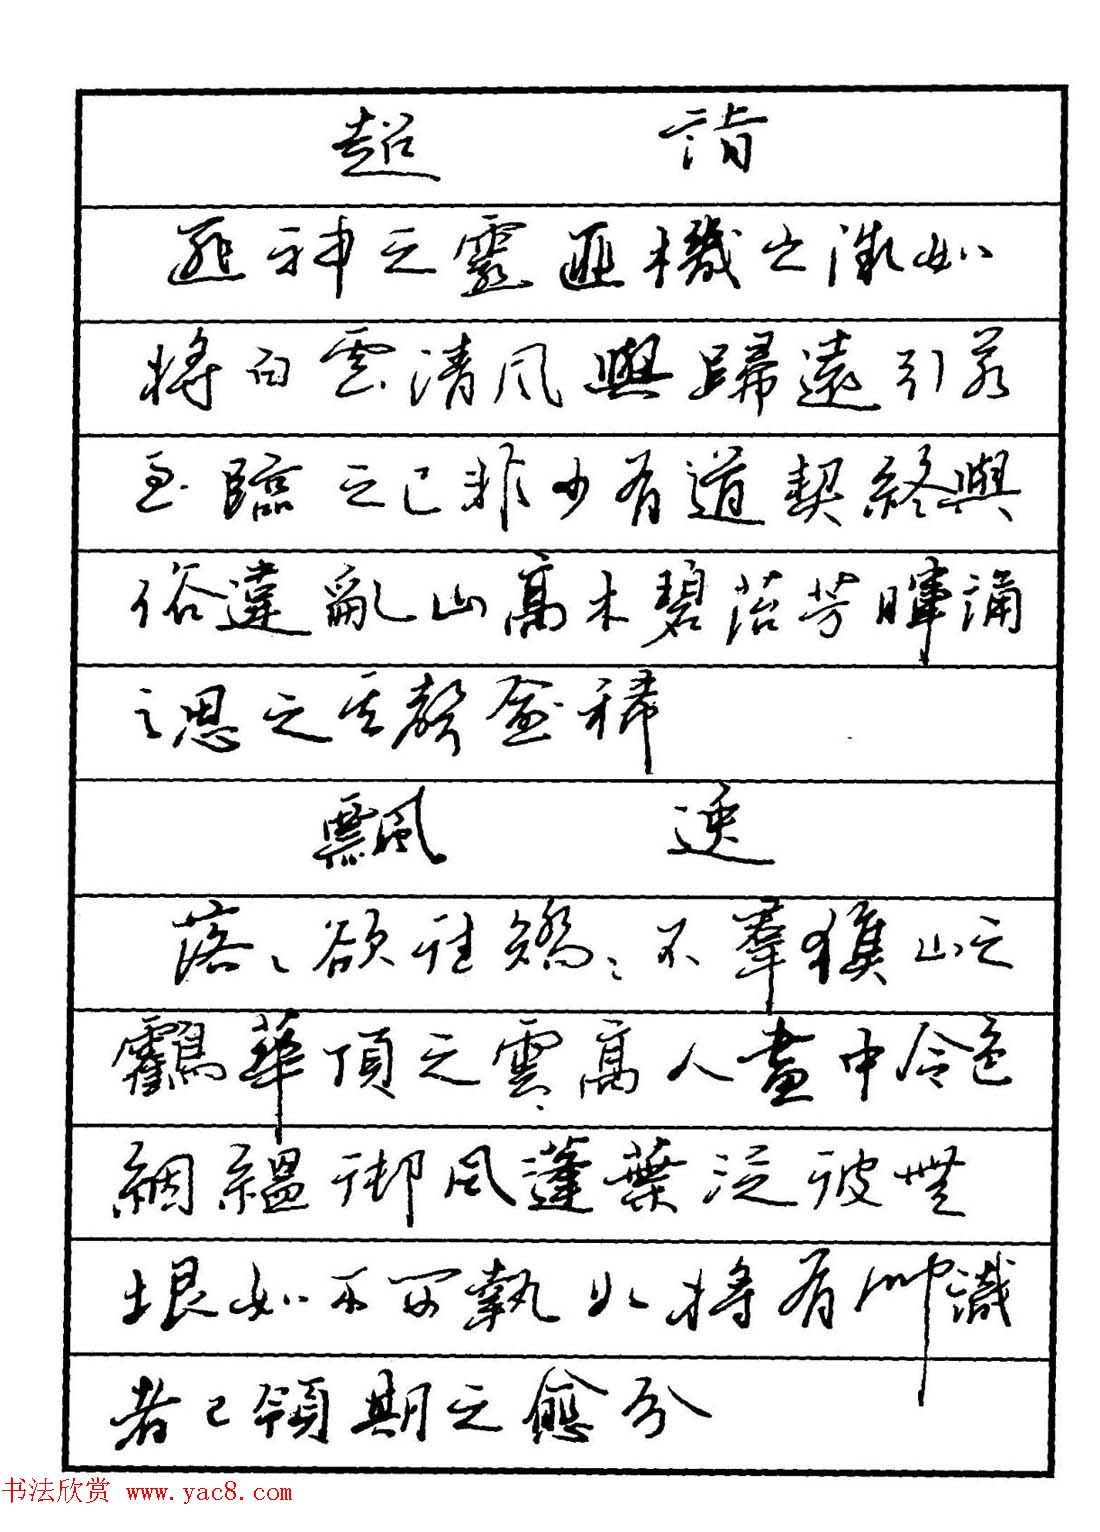 超 詣
匪神之靈匪機之微如
將白雲清風與歸遠引若
至臨之已非少有道契終與
俗違亂山高木碧苔芳暉誦
之思之其聲愈稀
飄 逸
落々欲往矯々不羣猴山之
鶴華頂之雲高人畫中令色
絪縕御風蓬葉泛彼無
垠如不可執如將有聞識
者已領期之愈分
书法欣赏 www.yac8.com